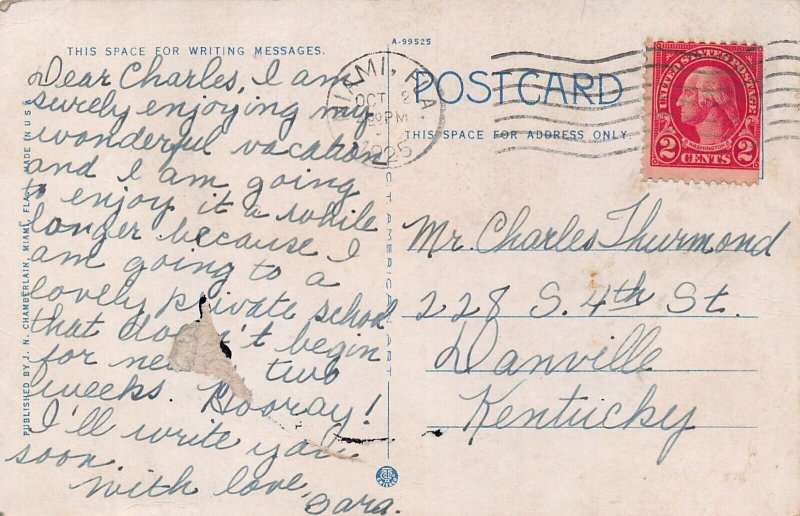 THIS SPACE FOR WRITING MESSAGES.
Dear Charles, I am
surely enjoying my
wonderful vacation
and I am going
to enjoy it a while
longer because I
am going to a
lovely private school
that doesn't begin
for two
weeks. Hooray!
I'll write you
soon.
With love,
Sara.
PUBLISHED BY J. N. CHAMBERLAIN, MIAMI, FLA. MADE IN U.S.A.
A-99525
C.T. AMERICAN ART
POSTCARD
THIS SPACE FOR ADDRESS ONLY
MIAMI, FLA.
OCT 2
PM
1925
UNITED STATES POSTAGE
WASHINGTON
2 CENTS 2
Mr. Charles Thurmond
228 S. 4th St.
Danville
Kentucky